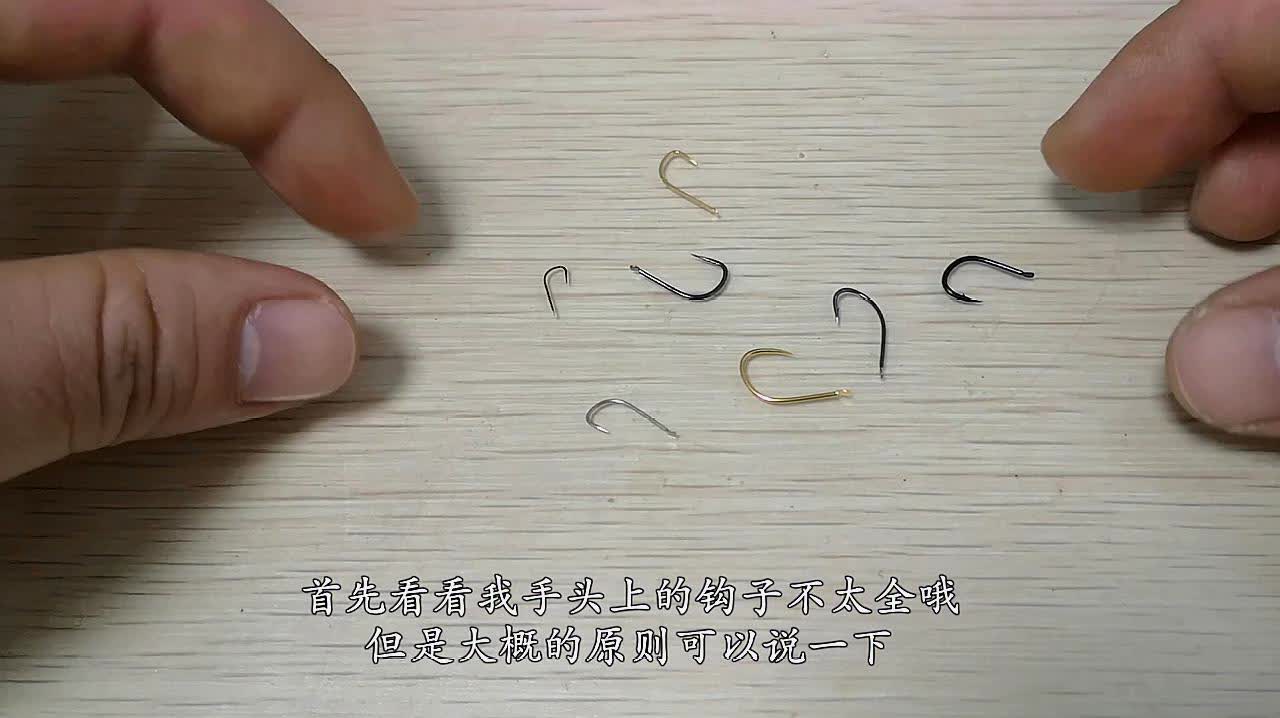 首先看看我手头上的钩子不太全哦
但是大概的原则可以说一下